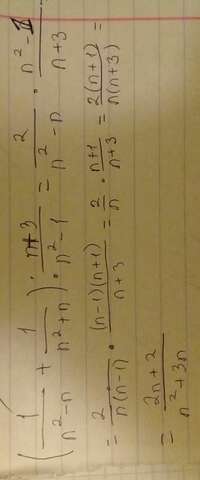 (1/(n²-n) + 1/(n²+n)) : (n+3)/(n²-1) = 2/(n²-n) · (n²-1)/(n+3) =
= 2/(n(n-1)) · ((n-1)(n+1))/(n+3) = 2/n · (n+1)/(n+3) = 2(n+1)/(n(n+3)) =
= (2n+2)/(n²+3n)